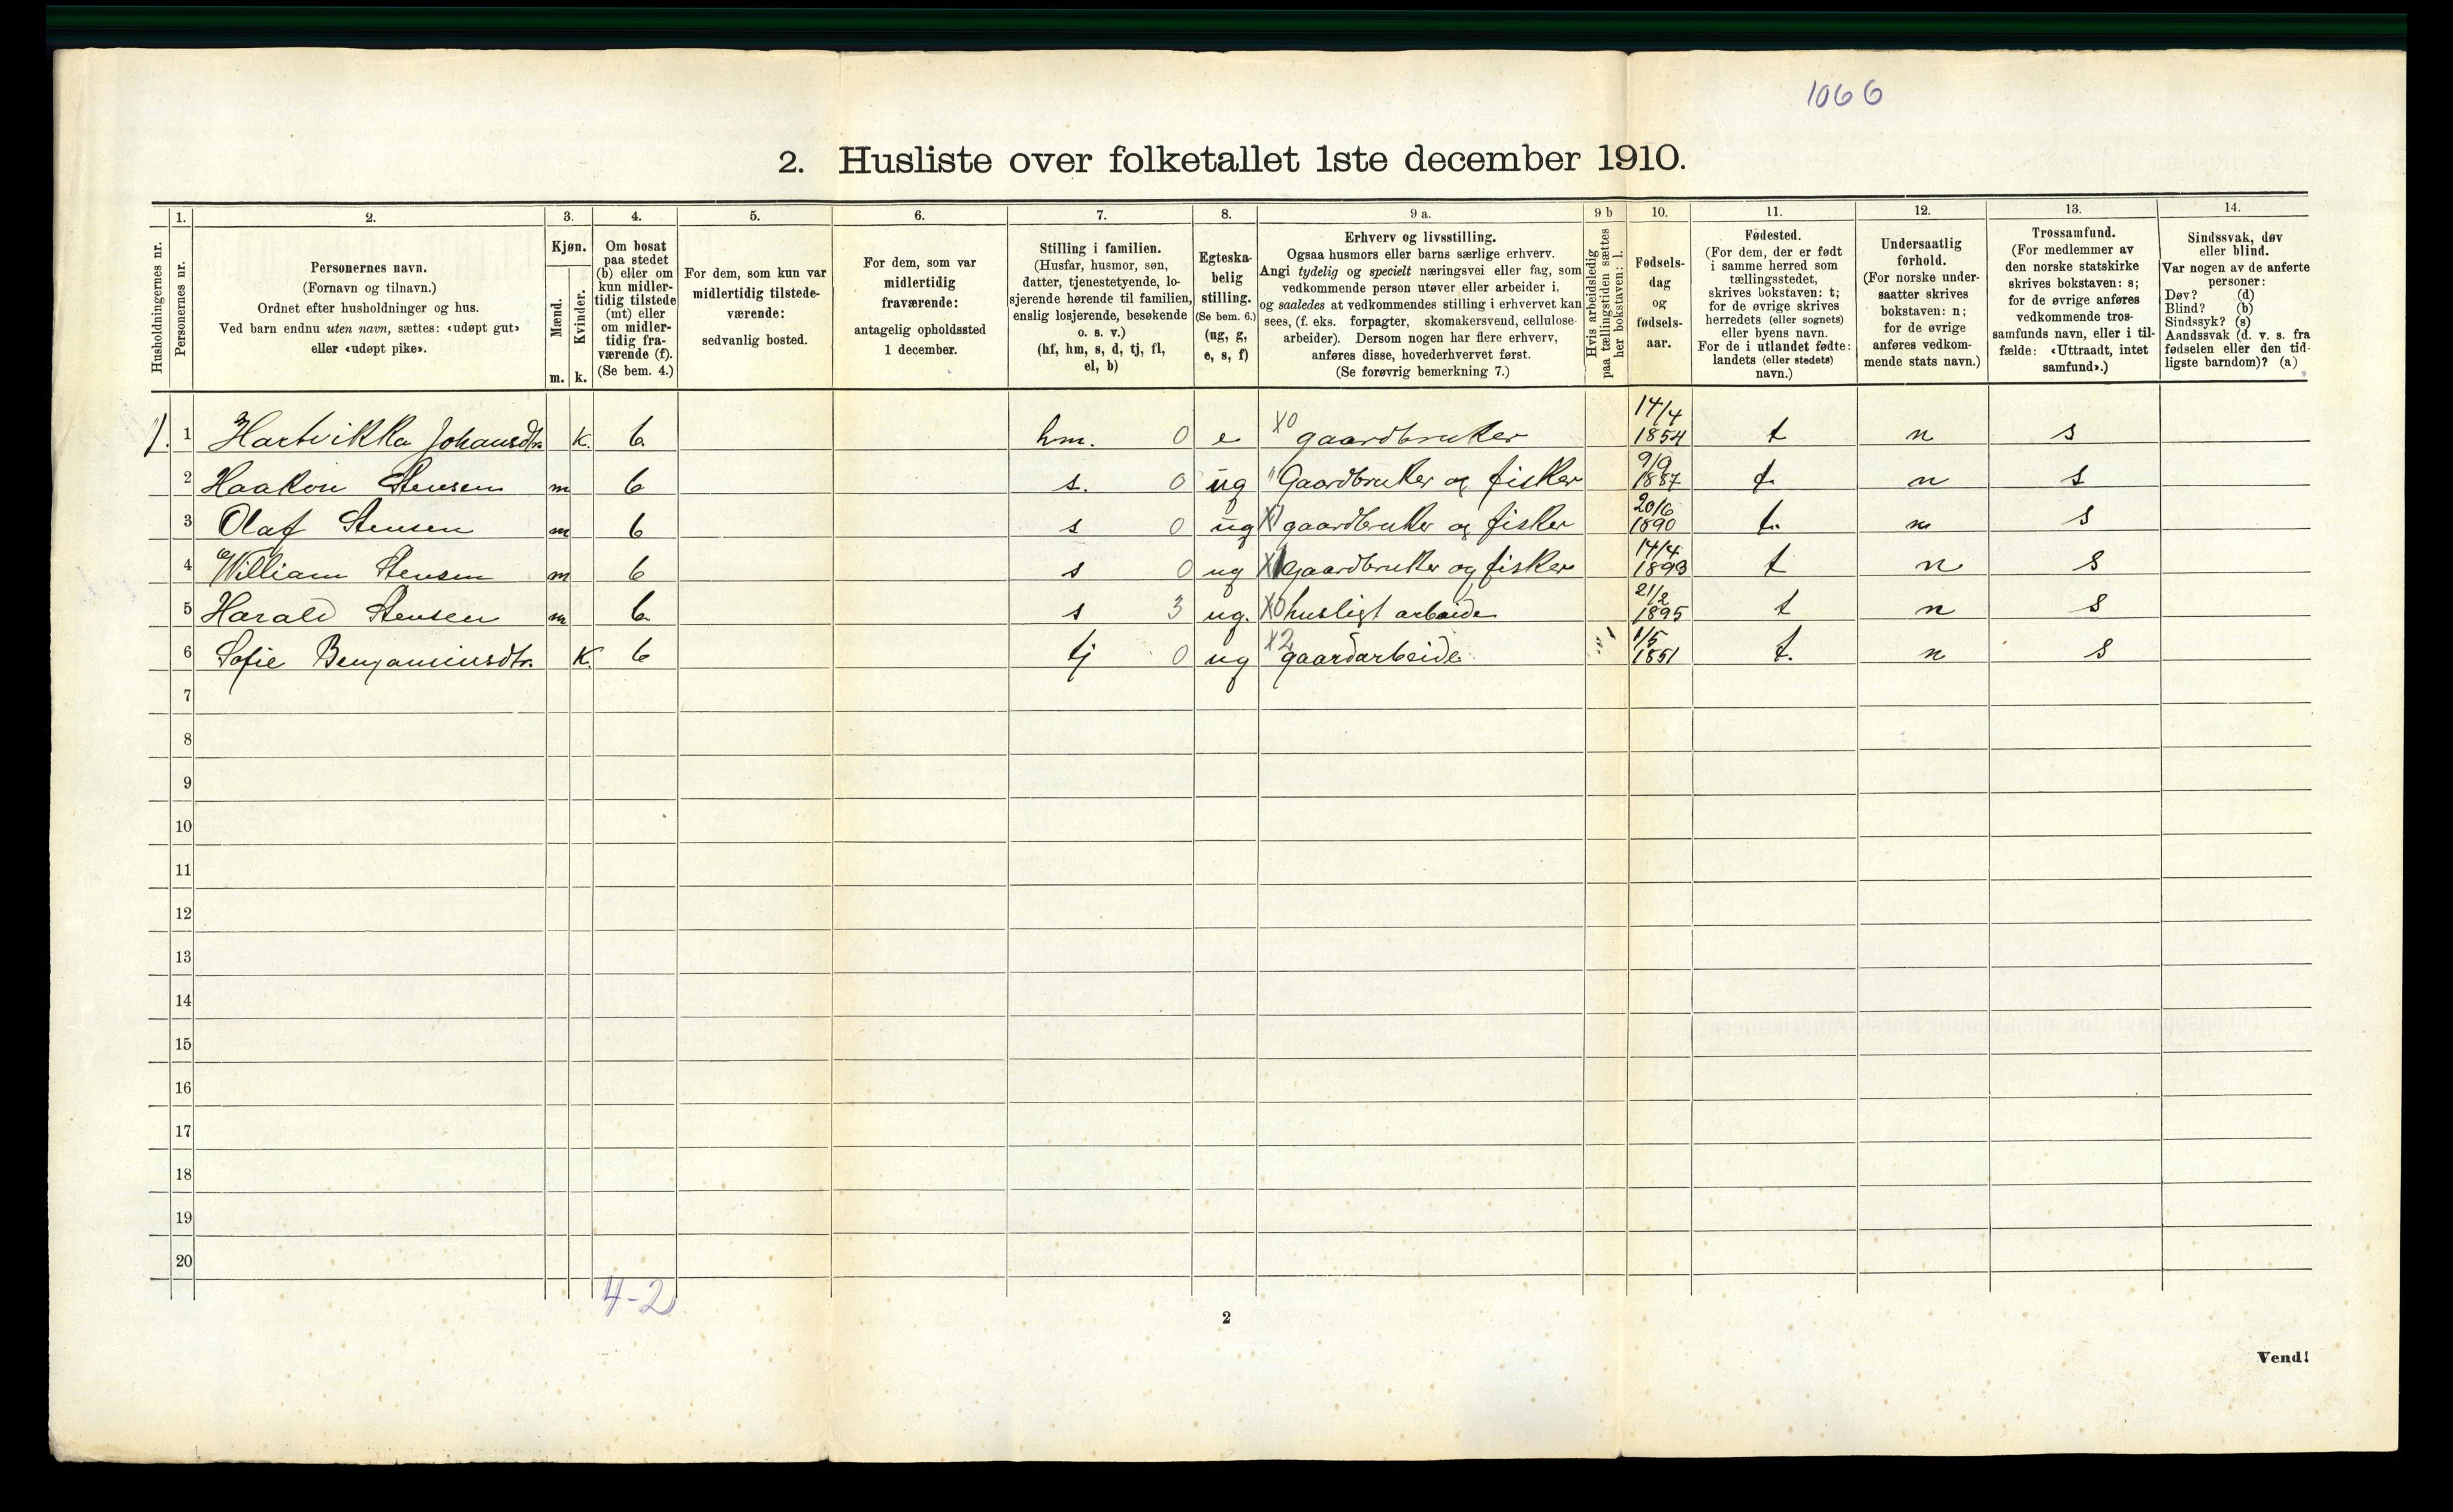 1066
2. Husliste over folketallet 1ste december 1910.
Husholdningernes nr.
1.
Personernes nr.
2.
Personernes navn.
(Fornavn og tilnavn.)
Ordnet efter husholdninger og hus.
Ved barn endnu uten navn, sættes: «udøpt gut»
eller «udøpt pike».
3.
Kjøn.
Mænd.
Kvinder.
m. k.
4.
Om bosat
paa stedet
(b) eller om
kun midler-
tidig tilstede
(mt) eller
om midler-
tidig fra-
værende (f).
(Se bem. 4.)
5.
For dem, som kun var
midlertidig tilstede-
værende:
sedvanlig bosted.
6.
For dem, som var
midlertidig
fraværende:
antagelig opholdssted
1 december.
7.
Stilling i familien.
(Husfar, husmor, søn,
datter, tjenestetyende, lo-
sjerende hørende til familien,
enslig losjerende, besøkende
o. s. v.)
(hf, hm, s, d, tj, fl,
el, b)
8.
Egteska-
belig
stilling.
(Se bem. 6.)
(ug, g,
e, s, f)
9 a.
Erhverv og livsstilling.
Ogsaa husmors eller barns særlige erhverv.
Angi tydelig og specielt næringsvei eller fag, som
vedkommende person utøver eller arbeider i,
og saaledes at vedkommendes stilling i erhvervet kan
sees, (f. eks. forpagter, skomakersvend, cellulose-
arbeider). Dersom nogen har flere erhverv,
anføres disse, hovederhvervet først.
(Se forøvrig bemerkning 7.)
9 b
Hvis arbeidsledig
paa tællingstiden sættes
her bokstaven: l.
10.
Fødsels-
dag
og
fødsels-
aar.
11.
Fødested.
(For dem, der er født
i samme herred som
tællingsstedet,
skrives bokstaven: t;
for de øvrige skrives
herredets (eller sognets)
eller byens navn.
For de i utlandet fødte:
landets (eller stedets)
navn.)
12.
Undersaatlig
forhold.
(For norske under-
saatter skrives
bokstaven: n;
for de øvrige
anføres vedkom-
mende stats navn.)
13.
Trossamfund.
(For medlemmer av
den norske statskirke
skrives bokstaven: s;
for de øvrige anføres
vedkommende tros-
samfunds navn, eller i til-
fælde: «Uttraadt, intet
samfund».)
14.
Sindssvak, døv
eller blind.
Var nogen av de anførte
personer:
Døv? (d)
Blind? (b)
Sindssyk? (s)
Aandssvak (d. v. s. fra
fødselen eller den tid-
ligste barndom)? (a)
1. 1 Hartvikka Johansdtr. K. b hm. 0 e X0 gaardbruker 14/4 1854 t n s
2 Haakon Stensen m b s. 0 ug " Gaardbruker og fisker 9/9 1887 t. n s
3 Olaf Stensen m b s 0 ug X1 gaardbruker og fisker 20/6 1890 t. n s
4 William Stensen m b s 0 ug X1 gaardbruker og fisker 14/4 1893 t n s
5 Harald Stensen m b s 3 ug. X0 husligt arbeide 21/2 1895 t n s
6 Sofie Benjaminsdtr. K. b tj 0 ug X2 gaardarbeide 1/5 1851 t. n s
7
8
9
10
11
12
13
14
15
16
17
18
19
20
4-2
2
Vend!